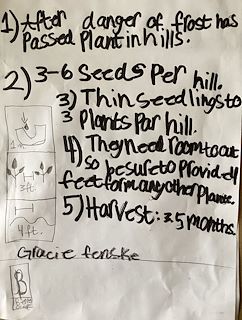 1) After danger of frost has
Passed Plant in hills.
2) 3-6 Seeds Per hill.
3) Thin Seedlings to
3 Plants Par hill.
4) They need room to
so be sure to Provid 4
feet form any other Plante.
5) Harvest: 3.5 months.
1in
3ft
4ft.
Gracie fenske
B